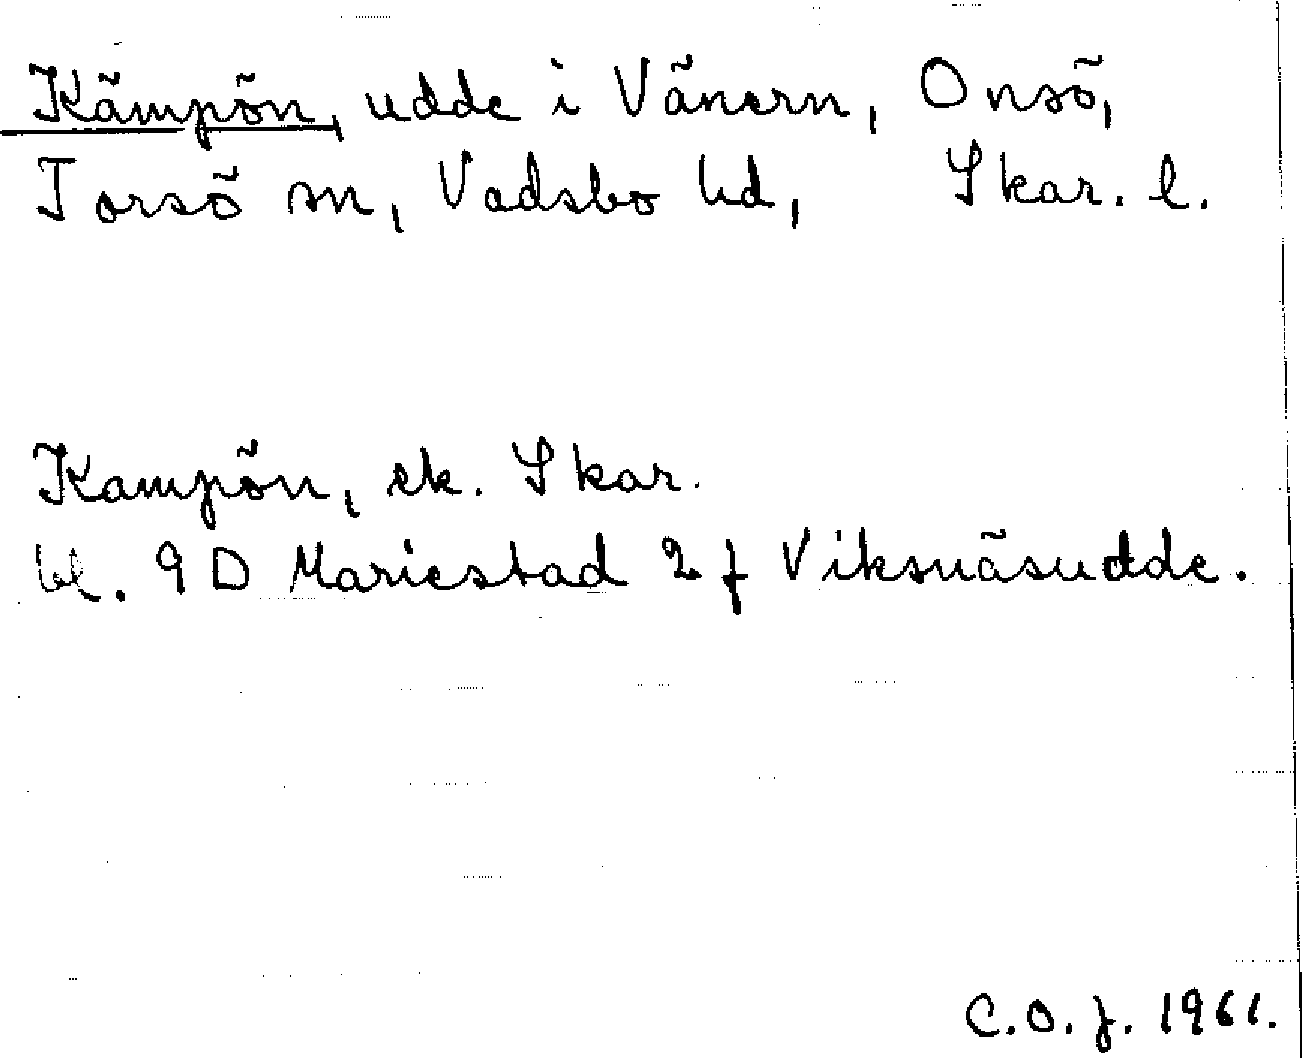 Kämpön, udde i Vänern, Onsö,
Torsö sn, Vadsbo hd, Skar. l.
Kampön, ek. Skar.
bl. 9 D Mariestad 2 f Viksnäsudde.
C.O.J. 1961.